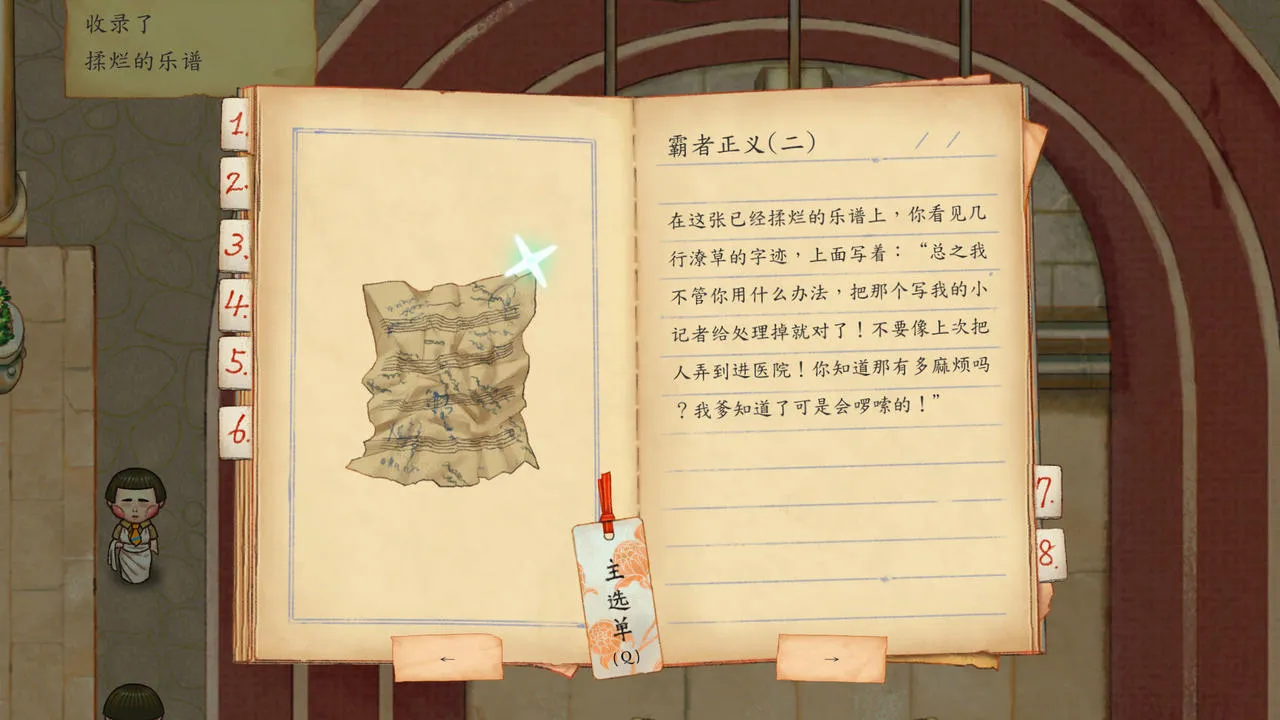 收录了
揉烂的乐谱
1.
2.
3.
4.
5.
6.
霸者正义(二)
在这张已经揉烂的乐谱上，你看见几
行潦草的字迹，上面写着：“总之我
不管你用什么办法，把那个写我的小
记者给处理掉就对了！不要像上次把
人弄到进医院！你知道那有多麻烦吗
？我爹知道了可是会啰嗦的！”
7.
8.
主选单
(Q)
←
→